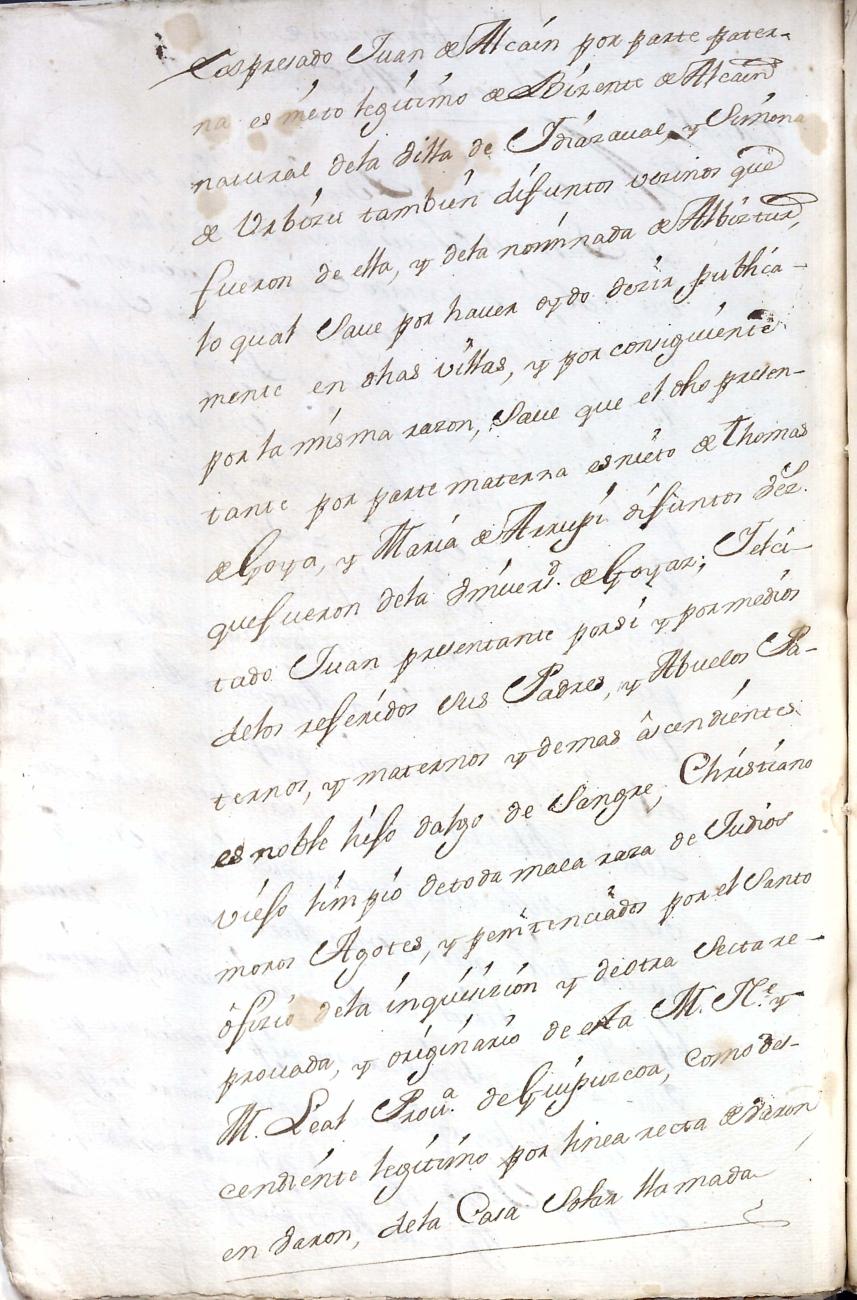 Expresado Juan de Alcain por parte pater-
na es nieto legitimo de Bizente de Alcain
natural dela villa de Idiazaval, y Simona
de Urbizu tambien difuntos vezinos que
fueron de ella, y dela nominada de Albiztur,
lo qual save por haver oydo dezir publica-
mente en dhas villas, y por consiguiente
por la misma razon, save que el dho presen-
tante por parte materna es nieto de Thomas
de Goya, y Maria de Arrupi difuntos vez.s
que fueron dela Univers.d de Goyaz; I el ci-
tado Juan presentante por si y por medios
delos referidos sus Padres, y Abuelos Pa-
ternos, y maternos y demas ascendientes
es noble hijo dalgo de sangre, Christiano
viejo limpio de toda mala raza de Judios
moros Agotes, y penitenciados por el Santo
ofizio dela inquisizion y de otra secta re-
provada, y originario de esta M. N.e y
M. Leal Prov.a de Guipuzcoa, como des-
cendiente legitimo por linea recta de varon
en varon, dela Casa Solar llamada